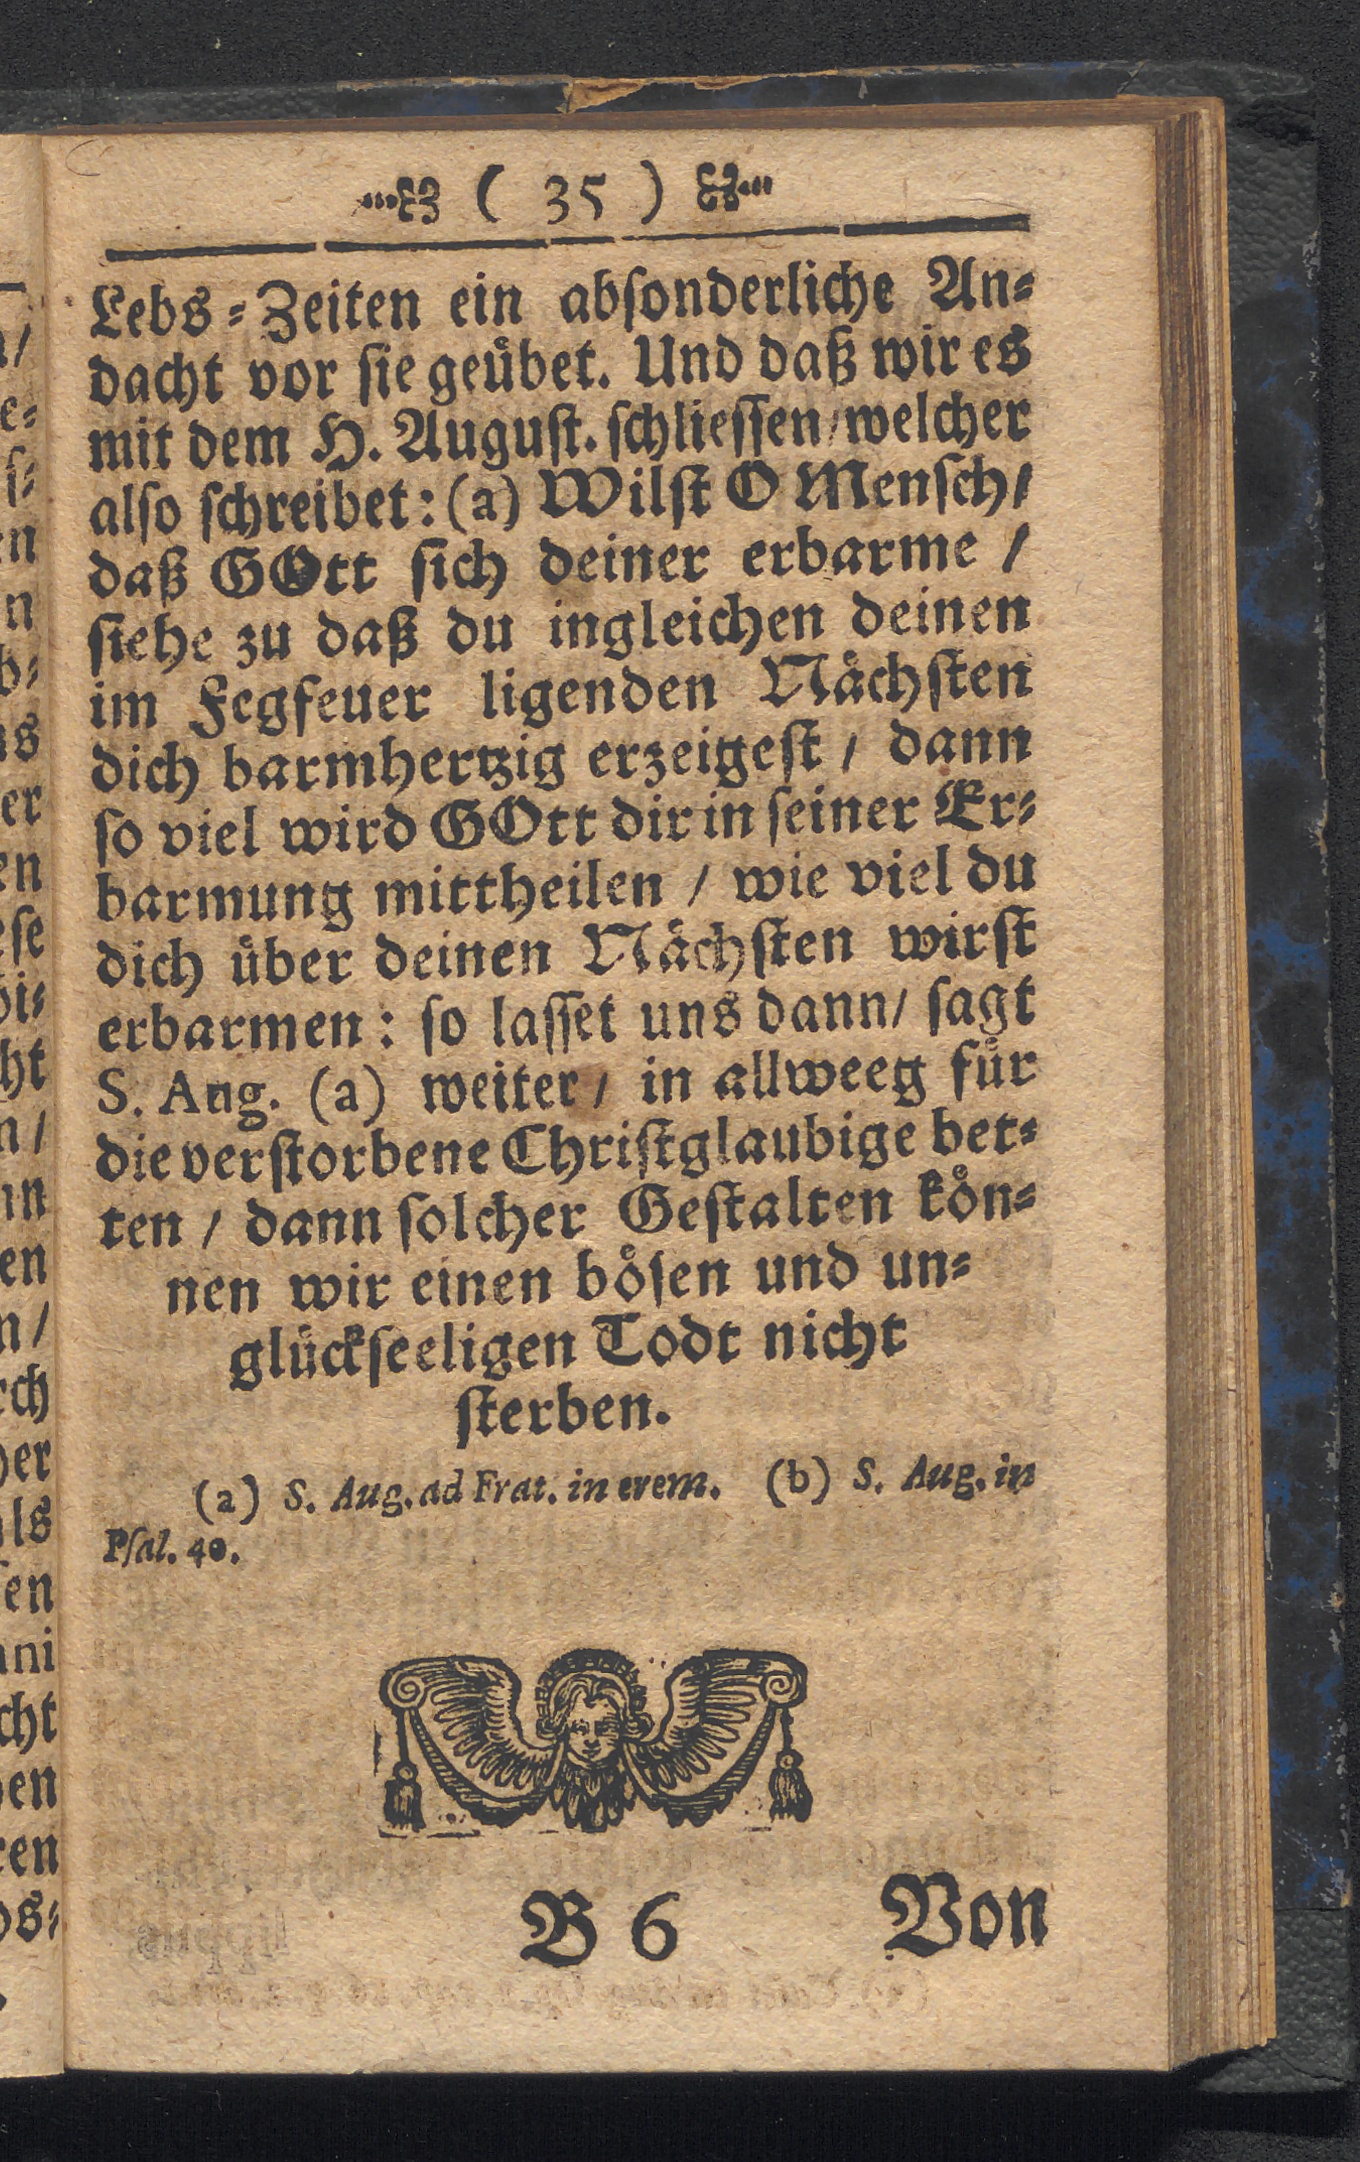 ( 35 )
Lebs-Zeiten ein absonderliche An-
dacht vor sie geübet. Und daß wir es
mit dem H. August. schliessen/ welcher
also schreibet: (a) Wilst O Mensch/
daß GOtt sich deiner erbarme /
siehe zu daß du ingleichen deinen
im Fegfeuer ligenden Nächsten
dich barmhertzig erzeigest / dann
so viel wird GOtt dir in seiner Er-
barmung mittheilen / wie viel du
dich über deinen Nächsten wirst
erbarmen: so lasset uns dann/ sagt
S. Aug. (a) weiter/ in allweeg für
die verstorbene Christglaubige bet-
ten / dann solcher Gestalten kön-
nen wir einen bösen und un-
glückseeligen Todt nicht
sterben.
(a) S. Aug. ad Frat. in erem. (b) S. Aug. in
Psal. 40.
B 6 Von